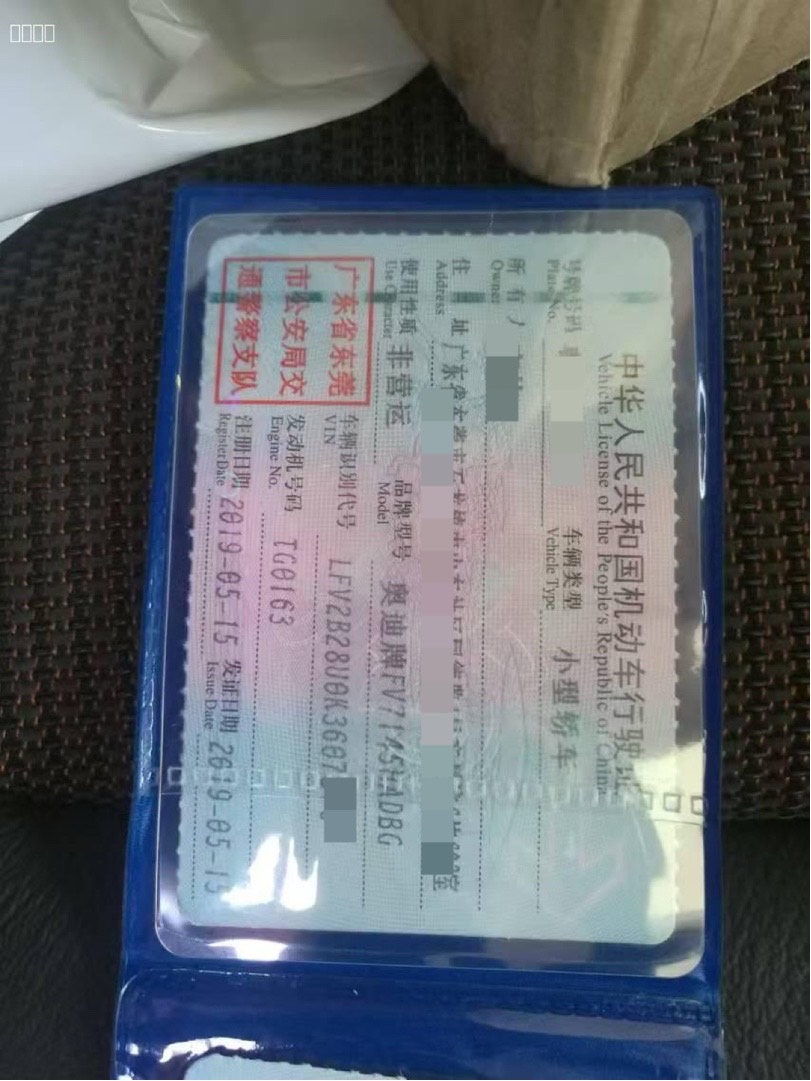 中华人民共和国机动车行驶证
Vehicle License of the People's Republic of China
号牌号码
Plate No.
车辆类型 小型轿车
Vehicle Type
所有人
Owner
住 址 广东省
Address
使用性质 非营运
Use Character
品牌型号 奥迪牌FV7145
Model
车辆识别代号 LFV2B28U0K3607
VIN
发动机号码 TG0163
Engine No.
注册日期 2019-05-15
Register Date
发证日期 2019-05-15
Issue Date
广东省东莞
市公安局交
通警察支队